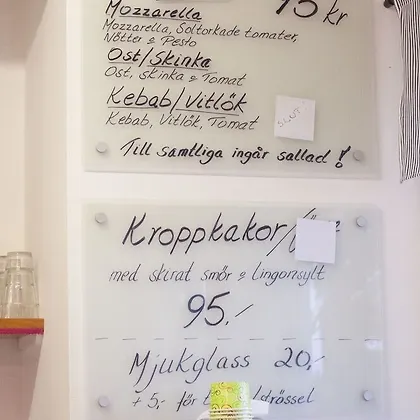 Mozzarella 95 kr
Mozzarella, Soltorkade tomater,
Nötter & Pesto
Ost/Skinka
Ost, skinka & Tomat
Kebab/Vitlök
Kebab, Vitlök, Tomat
SLUT!
Till samtliga ingår sallad!
Kroppkakor/
med skirat smör & lingonsylt
95,-
Mjukglass 20,-
+ 5,- för drössel